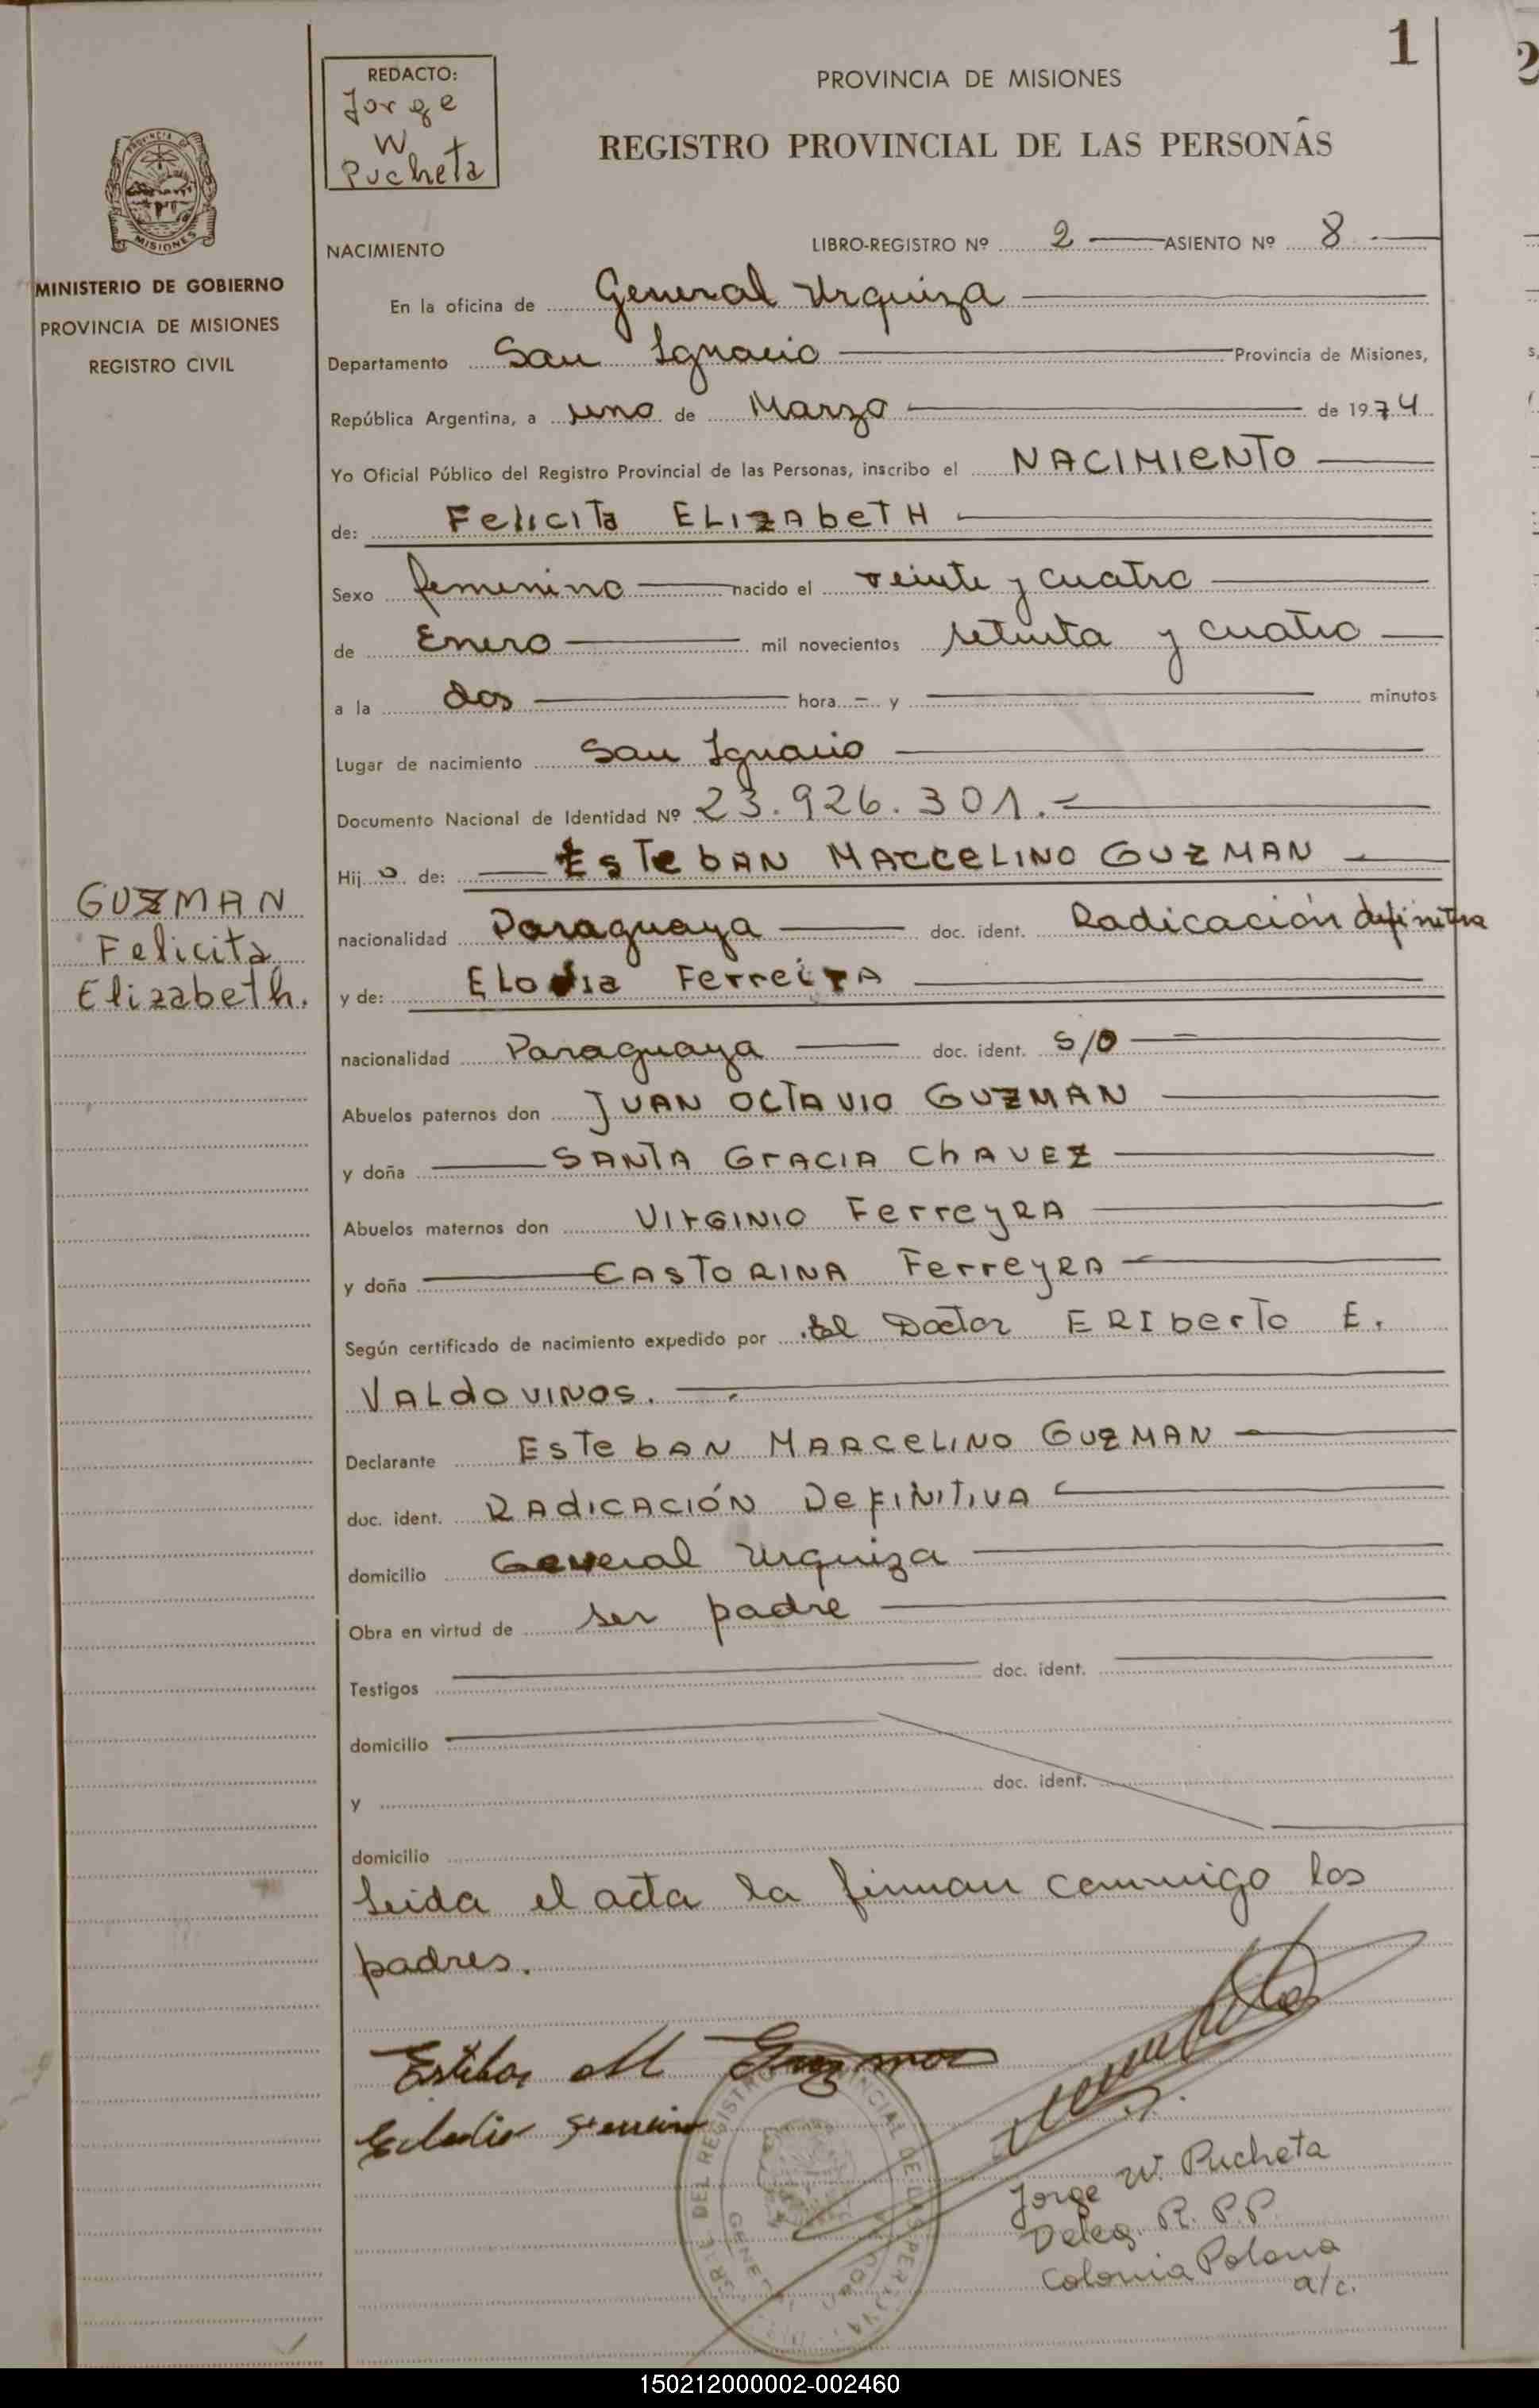 1
REDACTO:
Jorge
W.
Pucheta
PROVINCIA DE MISIONES
REGISTRO PROVINCIAL DE LAS PERSONAS
MISIONES
MINISTERIO DE GOBIERNO
PROVINCIA DE MISIONES
REGISTRO CIVIL
NACIMIENTO
LIBRO-REGISTRO Nº 2 ASIENTO Nº 8
En la oficina de General Urquiza
Departamento San Ignacio Provincia de Misiones,
República Argentina, a uno de Marzo de 1974
Yo Oficial Público del Registro Provincial de las Personas, inscribo el NACIMIENTO
de: Felicita ELIZAbeTH
Sexo femenino nacido el veinte y cuatro
de Enero mil novecientos setenta y cuatro
a la dos hora y minutos
Lugar de nacimiento San Ignacio
Documento Nacional de Identidad Nº 23.926.301.
Hij de: ESTebAN MARCELINO GUZMAN
nacionalidad Paraguaya doc. ident. Radicación definitiva
y de: ELodia FerreirA
nacionalidad Paraguaya doc. ident. S/D
Abuelos paternos don JUAN OCTAVIO GUZMAN
y doña SANTA GrACIA ChAVEZ
Abuelos maternos don VIrGINIO FerreyRA
y doña CASTORINA FerreyRA
Según certificado de nacimiento expedido por El Doctor ERIberTo E.
VALdoVINOS.
Declarante ESTebAN MARCELINO GUZMAN
doc. ident. RAdICACIÓN DeFINITIVA
domicilio General Urquiza
Obra en virtud de ser padre
Testigos doc. ident.
domicilio
y doc. ident.
domicilio
Leida el acta la firman conmigo los
padres.
GUZMAN
Felicita
Elizabeth.
Esteban M Guzman
Jorge W. Pucheta
Deleg. R. P. P.
Colonia Polana
a/c.
150212000002-002460